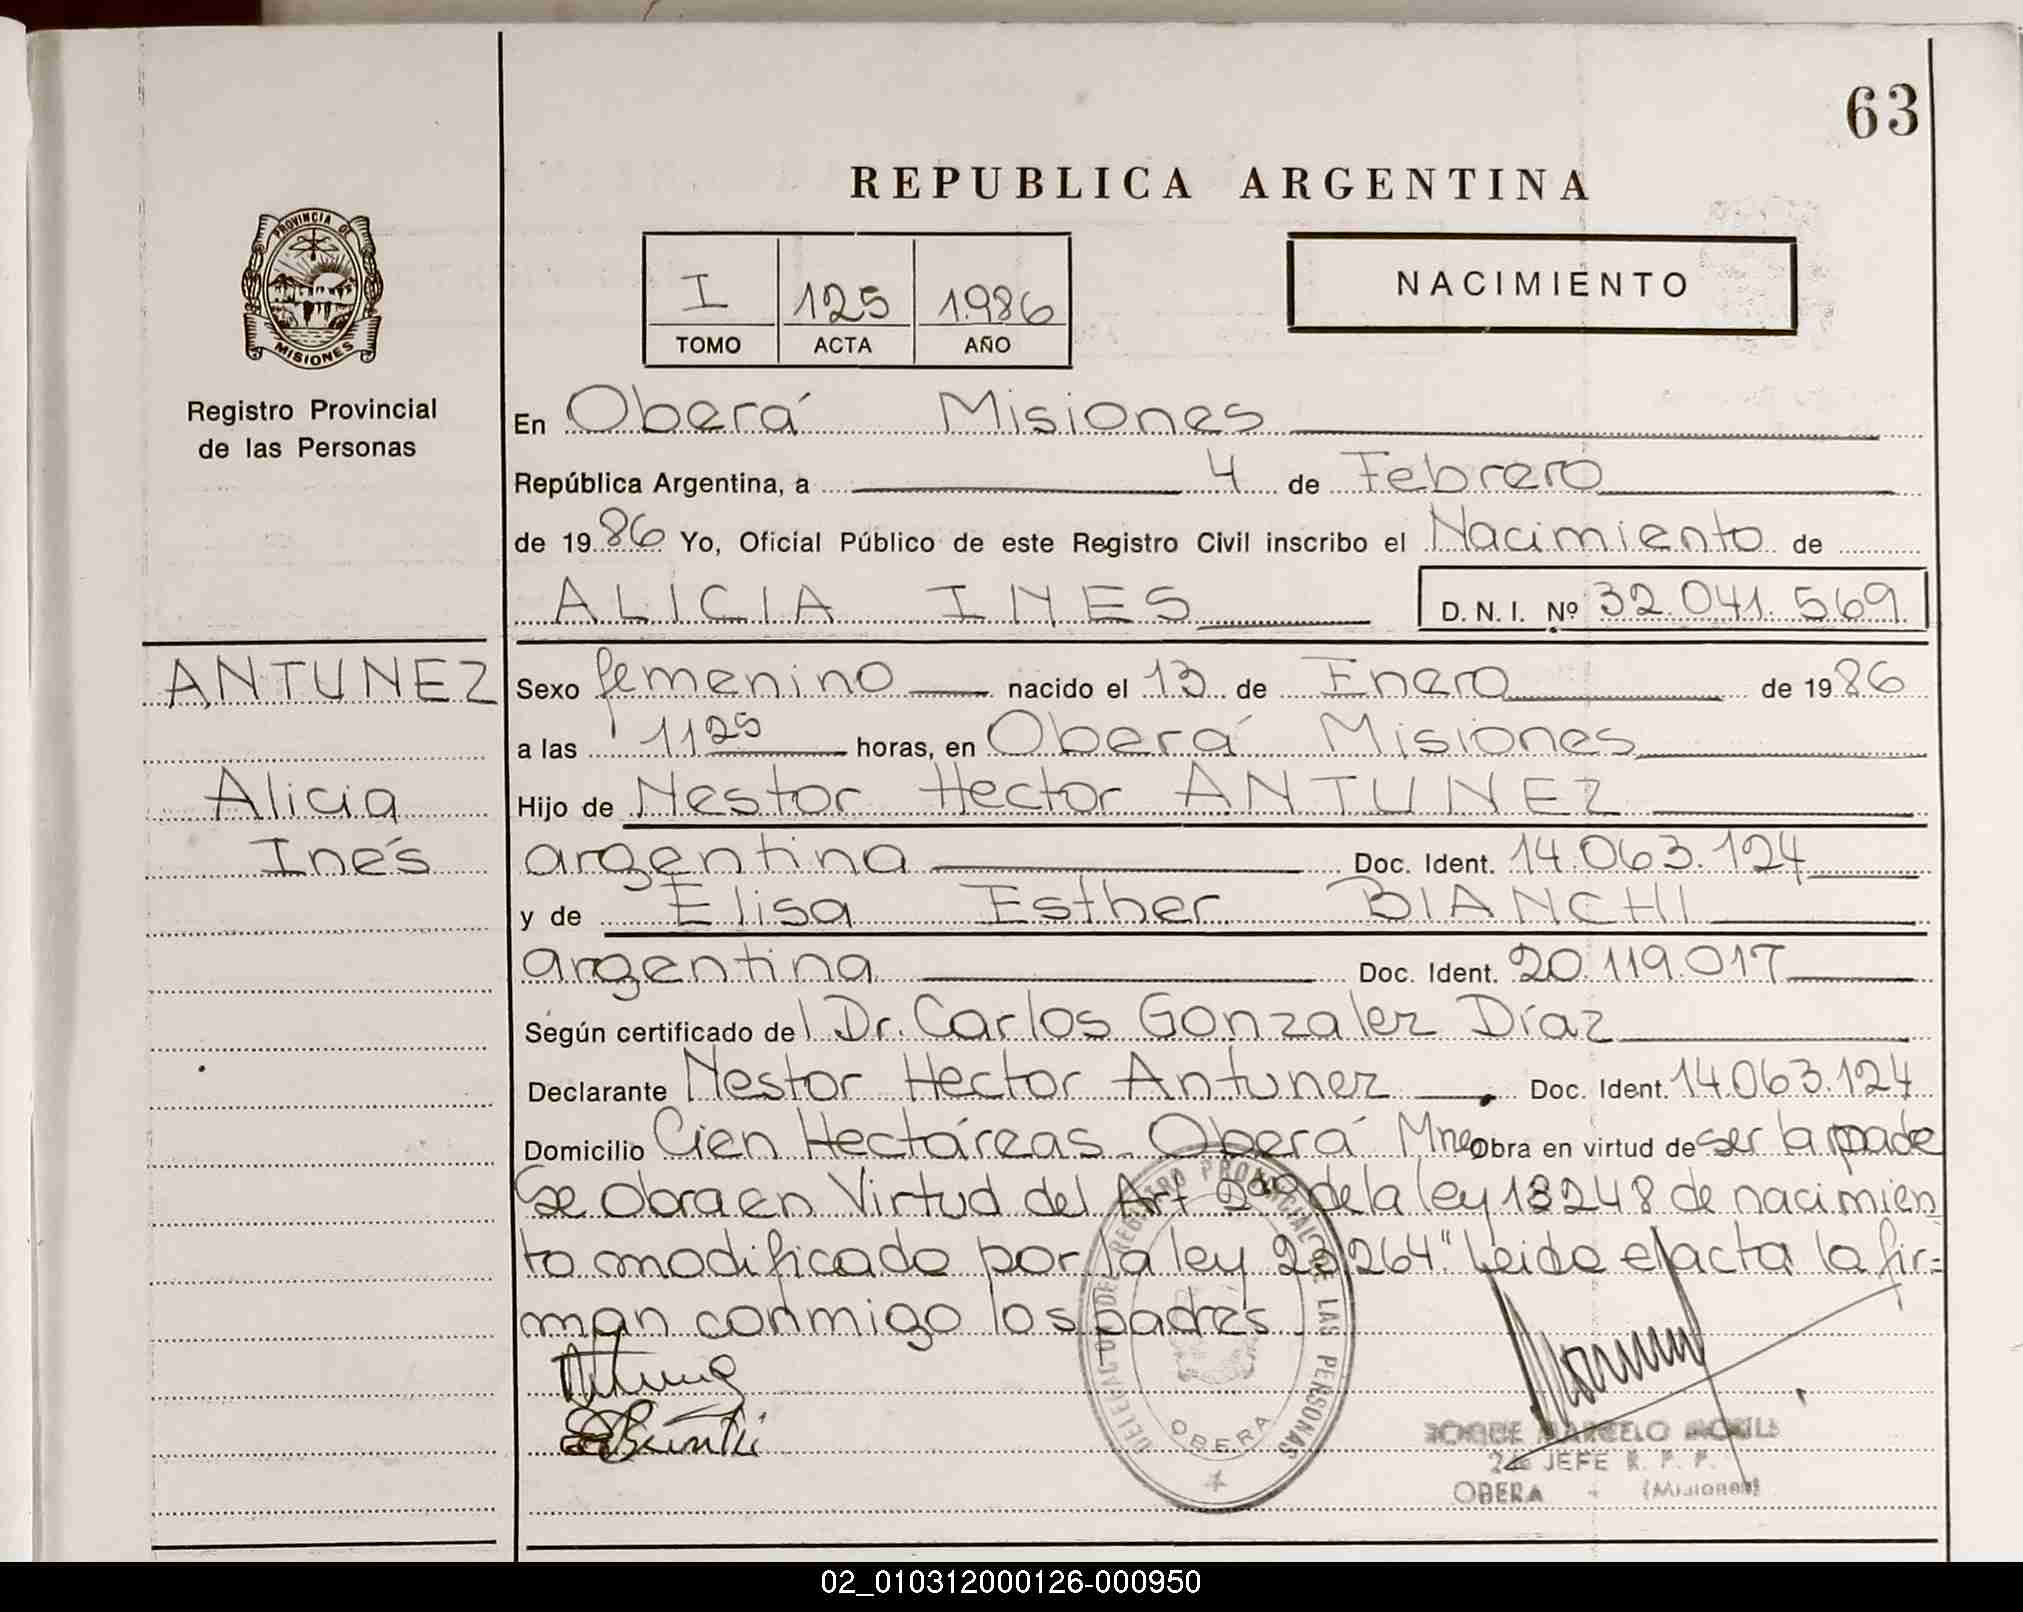 63
REPUBLICA ARGENTINA
PROVINCIA DE
MISIONES
Registro Provincial
de las Personas
I 125 1986
TOMO ACTA AÑO
NACIMIENTO
En Oberá Misiones
República Argentina, a 4 de Febrero
de 1986 Yo, Oficial Público de este Registro Civil inscribo el Nacimiento de
ALICIA INES D.N.I. Nº 32.041.569
ANTUNEZ
Alicia
Inés
Sexo femenino nacido el 13 de Enero de 1986
a las 11 25 horas, en Oberá Misiones
Hijo de Nestor Hector ANTUNEZ
argentina Doc. Ident. 14.063.124
y de Elisa Esther BIANCHI
argentina Doc. Ident. 20.119.017
Según certificado del Dr. Carlos Gonzalez Díaz
Declarante Nestor Hector Antunez Doc. Ident. 14.063.124
Domicilio Cien Hectáreas. Oberá Mnes Obra en virtud de ser la
Se obra en Virtud del Art 2do de la ley 18248 de nacimien
to modificado por la ley 23264" Leida el acta la fir=
man conmigo los padres.
DELEGACION DEL REGISTRO PROVINCIAL DE LAS PERSONAS
OBERA
MARCELO
2do JEFE R. P. P.
OBERA - (Misiones)
02_010312000126-000950